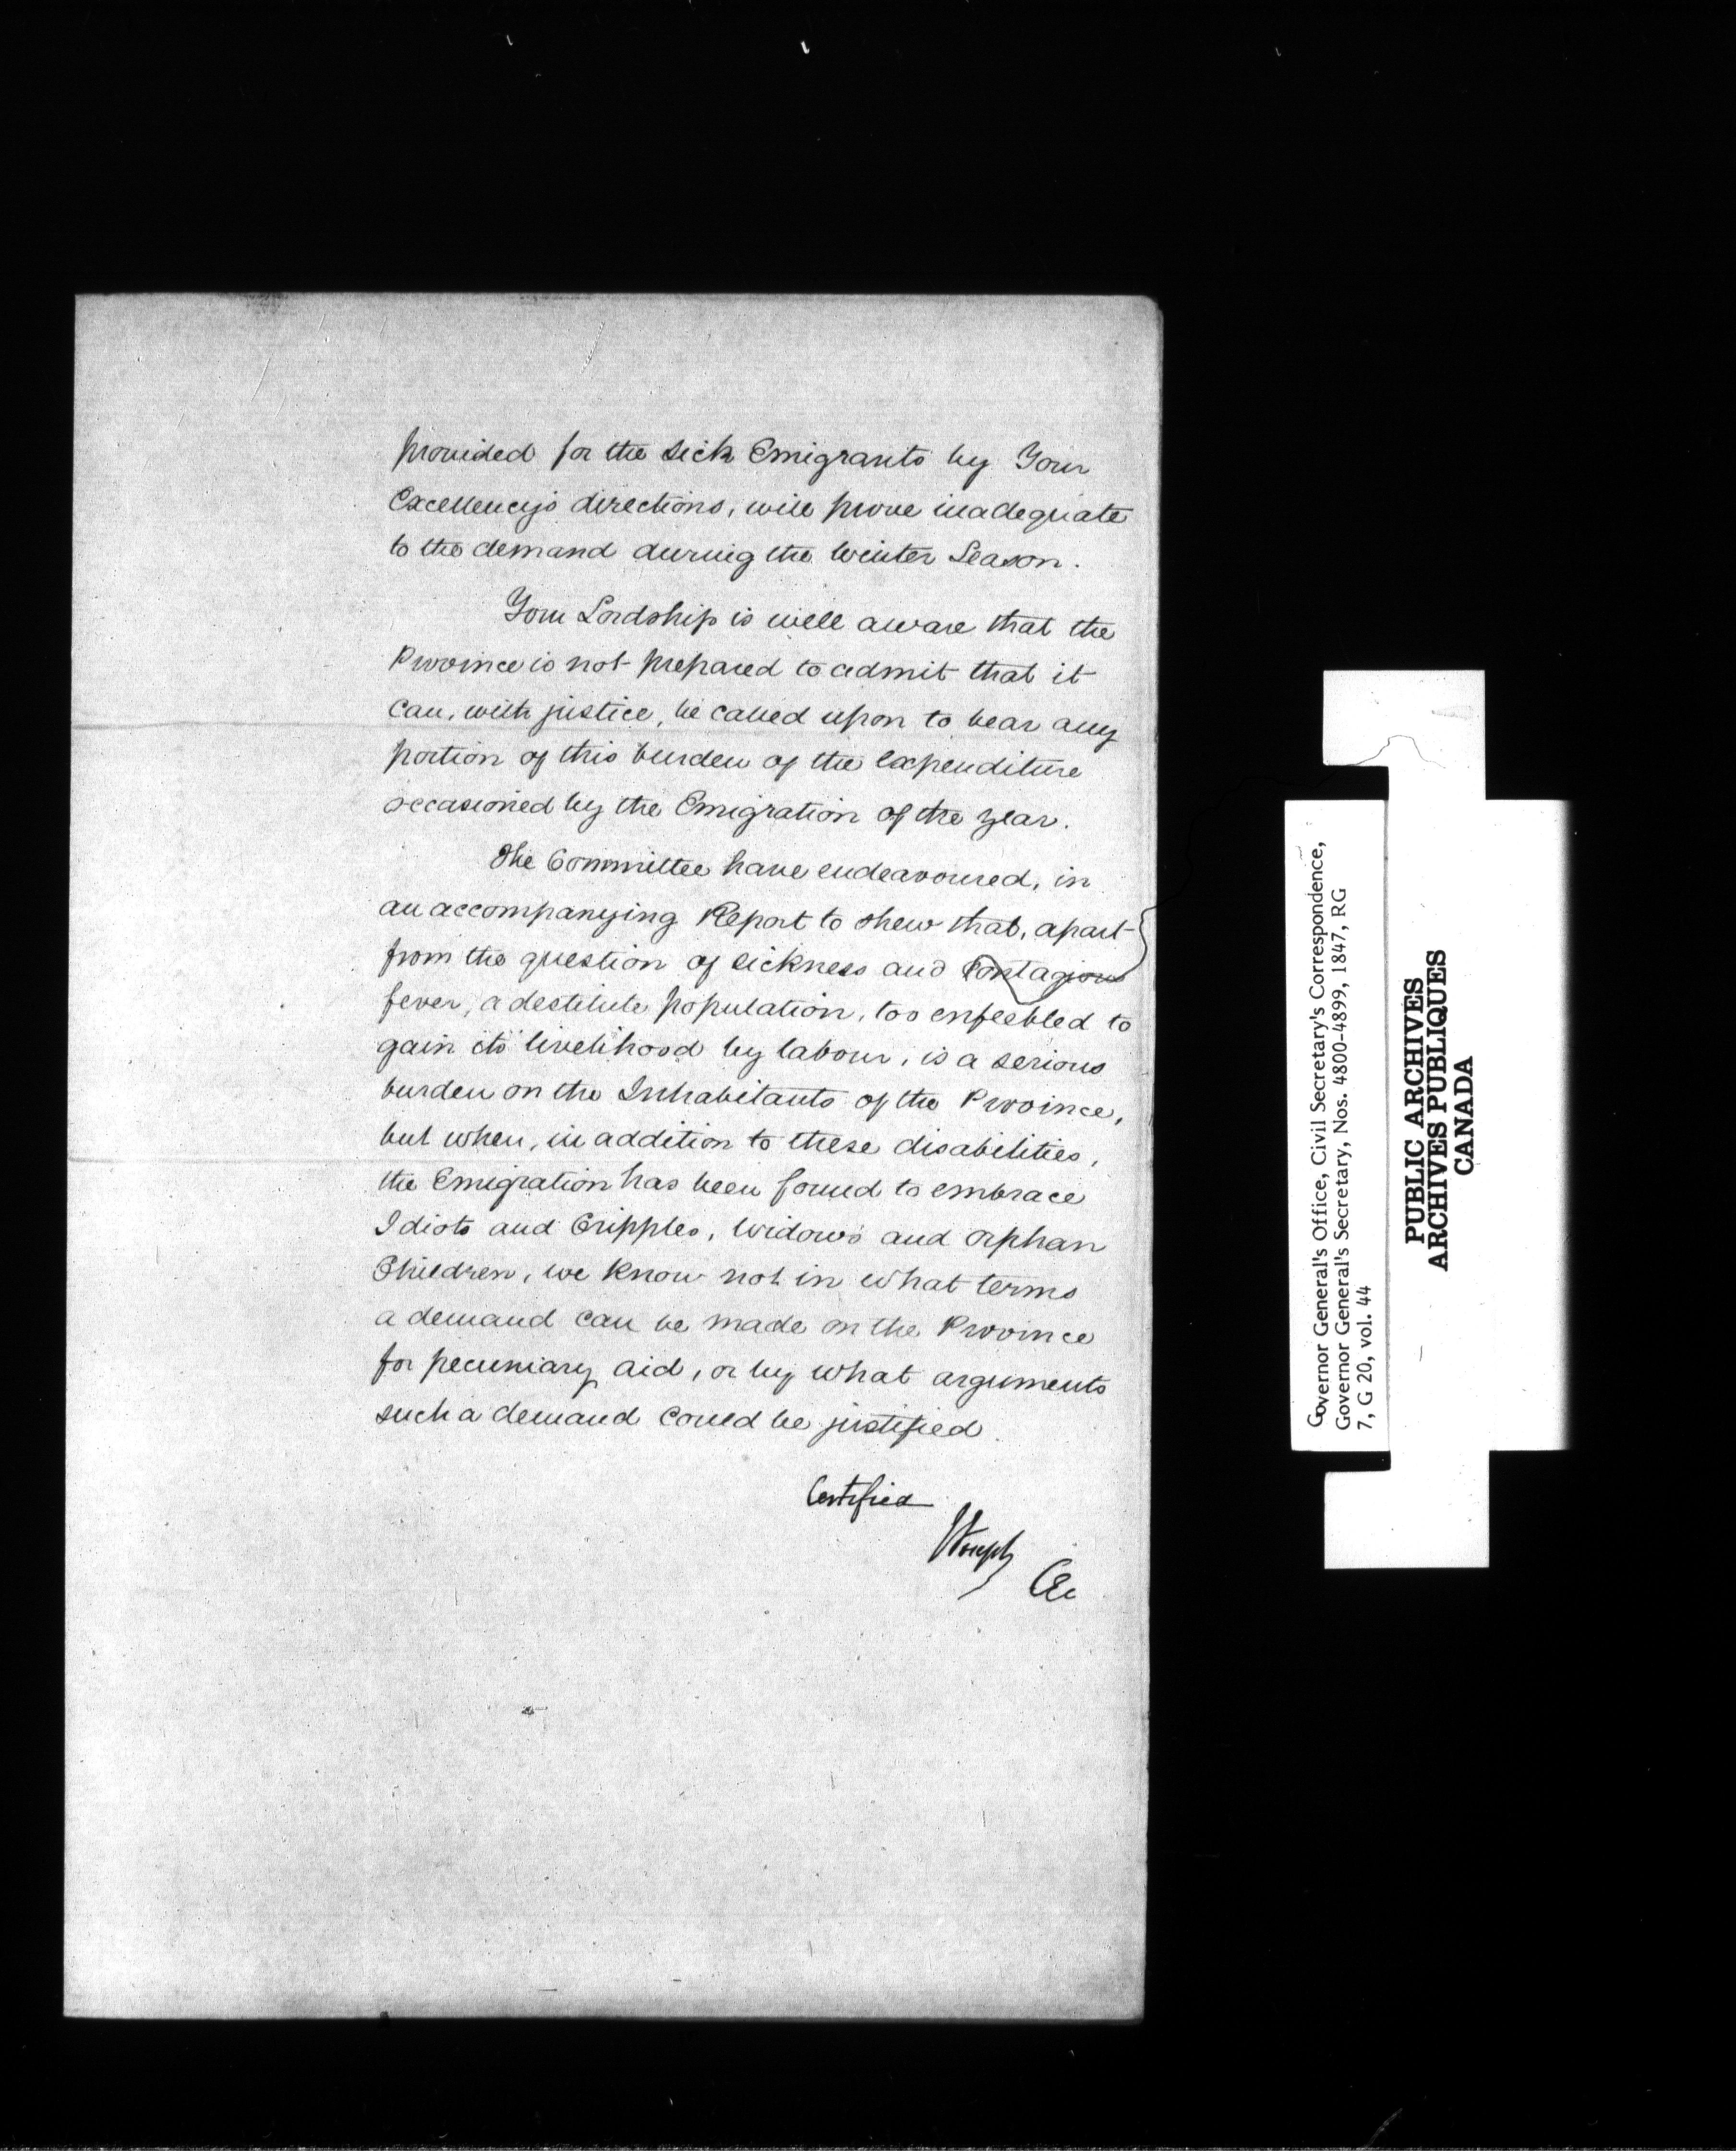 provided for the sick Emigrants by Your
Excellency's directions, will prove inadequate
to the demand during the Winter Season.
Your Lordship is well aware that the
Province is not prepared to admit that it
can, with justice, be called upon to bear any
portion of this burden of the expenditure
occasioned by the Emigration of the year.
The Committee have endeavoured, in
an accompanying Report to shew that, apart
from the question of sickness and contagious
fever, a destitute population, too enfeebled to
gain its livelihood by labour, is a serious
burden on the Inhabitants of the Province,
but when, in addition to these disabilities,
the Emigration has been found to embrace
Idiots and Cripples, Widows and Orphan
Children, we know not in what terms
a demand can be made on the Province
for pecuniary aid, or by what arguments
such a demand could be justified.
Certified
Governor General's Office, Civil Secretary's Correspondence,
Governor General's Secretary, Nos. 4800-4899, 1847, RG
7, G 20, vol. 44
PUBLIC ARCHIVES
ARCHIVES PUBLIQUES
CANADA